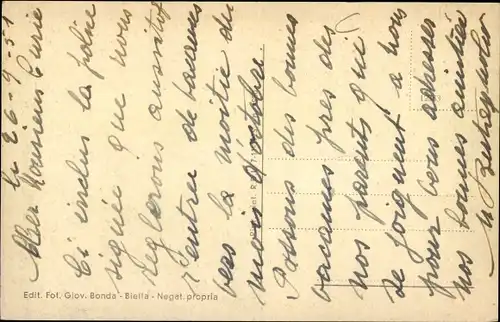 le 26-9-51
Cher Monsieur Curie
Ci inclus la police
signée que nous
réglerons aussitôt
rentrés de vacances
vers la moitié du
mois d'octobre.
Passons des bonnes
vacances près des
nos parents qui
se joignent à nous
pour vous adresser
nos bonnes amitiés
Edit. Fot. Giov. Bonda - Biella - Negat. propria